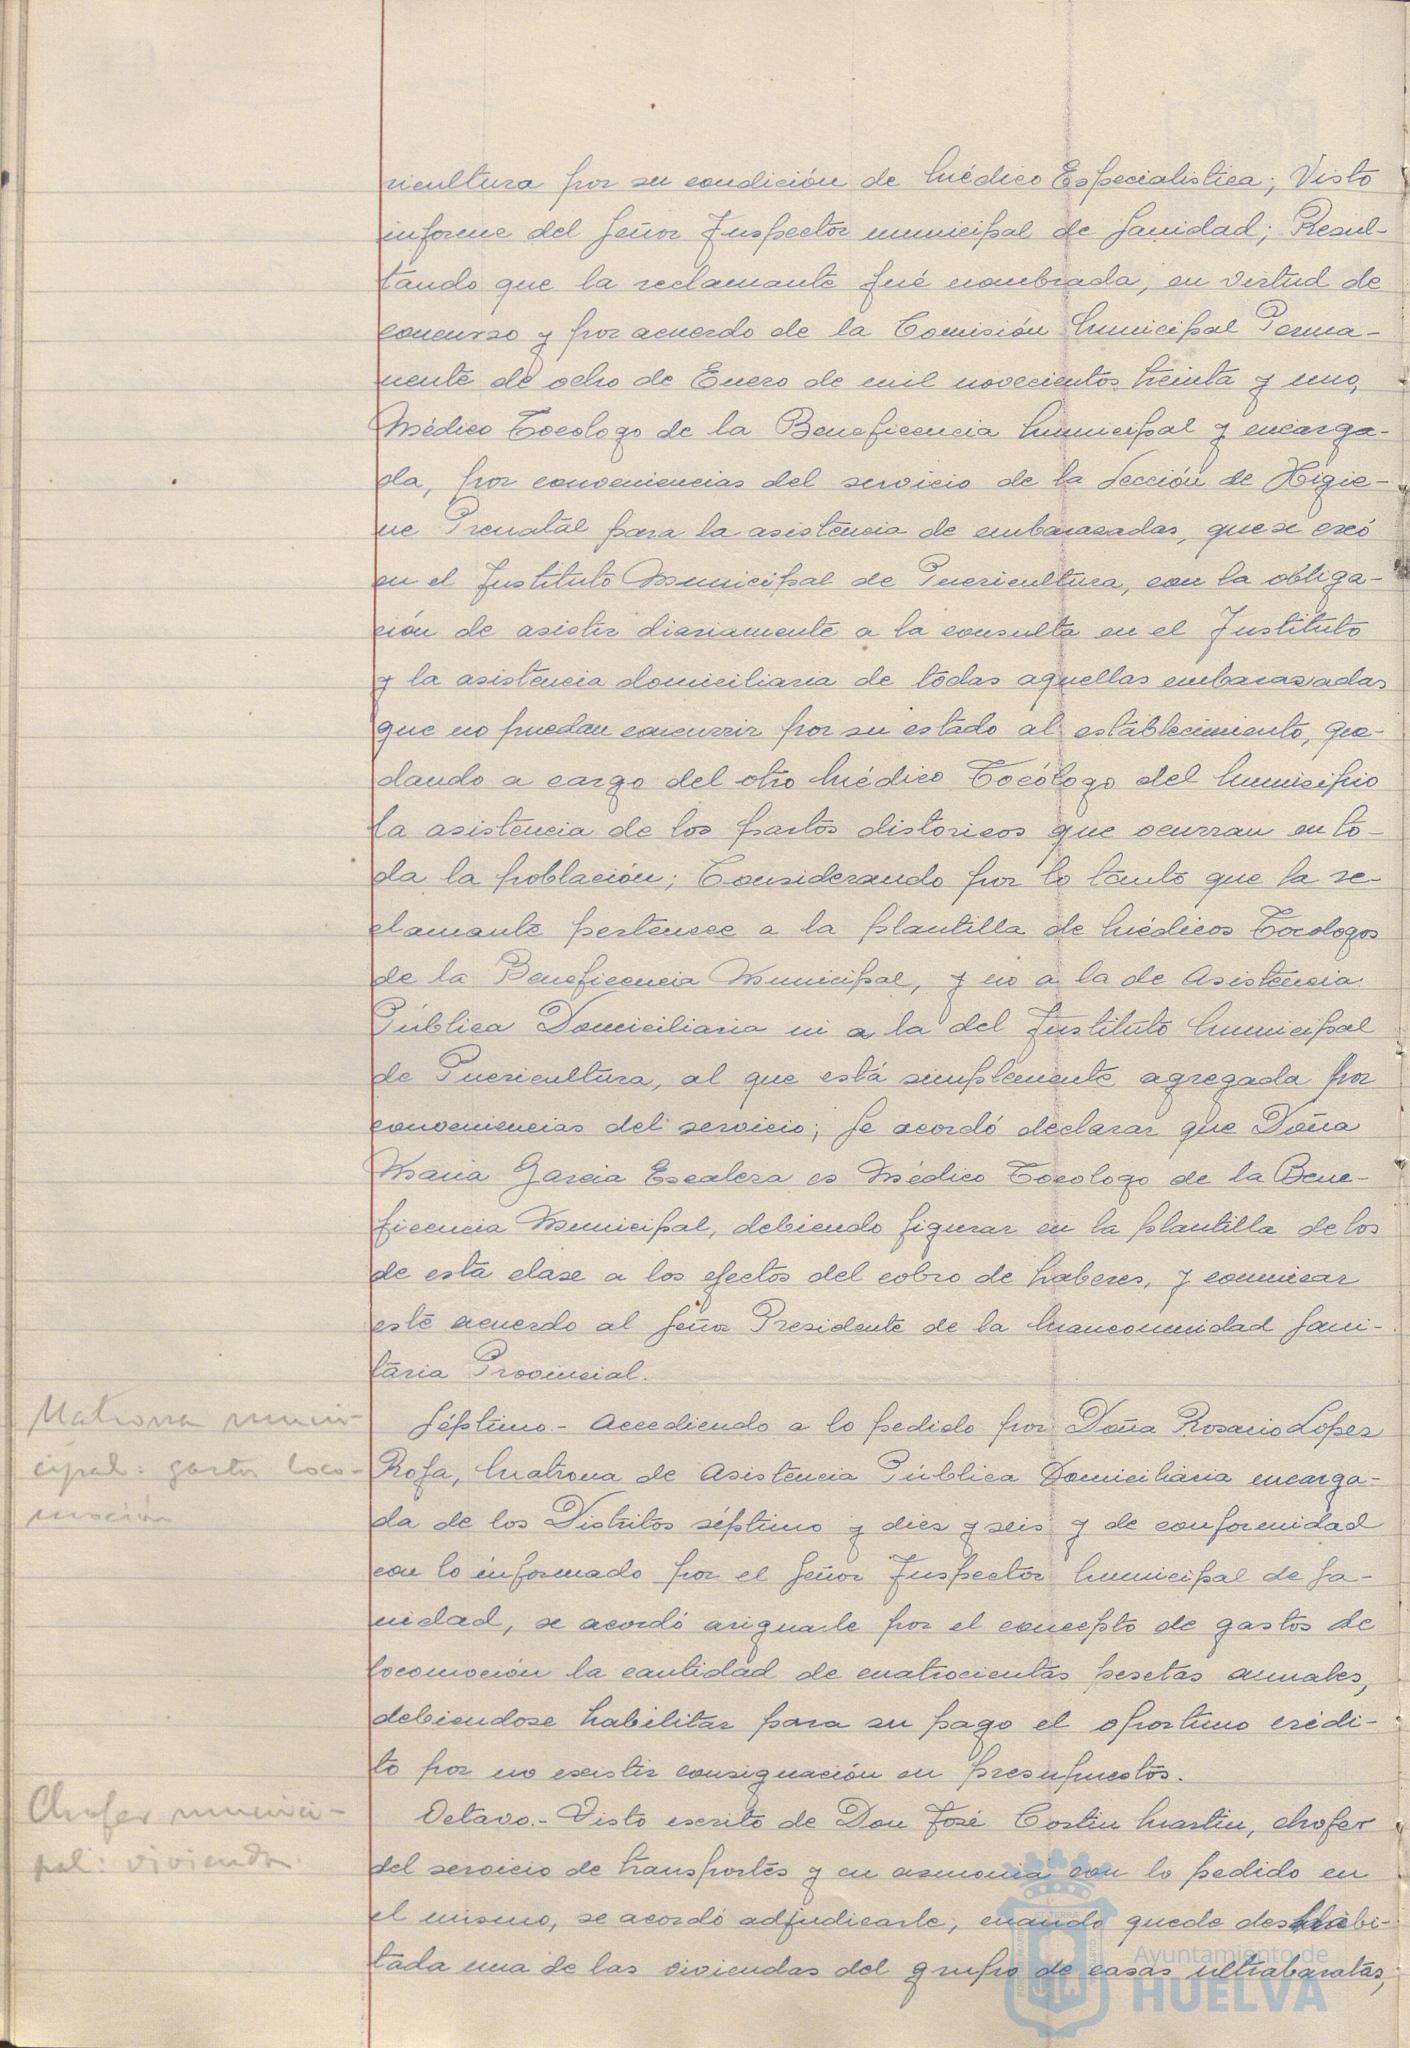 ricultura por su condición de Médico Especialistica; Visto
informe del Señor Inspector municipal de Sanidad; Resul-
tando que la reclamante fué nombrada, en virtud de
concurso y por acuerdo de la Comisión Municipal Perma-
nente de ocho de Enero de mil novecientos treinta y uno,
Médico Tocologo de la Beneficencia Municipal y encarga-
da, por conveniencias del servicio de la Sección de Higie-
ne Prenatal para la asistencia de embarazadas, que se creó
en el Instituto Municipal de Puericultura, con la obliga-
ción de asistir diariamente a la consulta en el Instituto
y la asistencia domiciliaria de todas aquellas embarazadas
que no puedan concurrir por su estado al establecimiento, que-
dando a cargo del otro Médico Tocólogo del Municipio
la asistencia de los partos distoricos que ocurran en to-
da la población; Considerando por lo tanto que la re-
clamante pertenece a la plantilla de Médicos Tocologos
de la Beneficencia Municipal, y no a la de Asistencia
Pública Domiciliaria ni a la del Instituto Municipal
de Puericultura, al que está simplemente agregada por
conveniencias del servicio; Se acordó declarar que Doña
Maria Garcia Escalera es Médico Tocologo de la Bene-
ficencia Municipal, debiendo figurar en la plantilla de los
de esta clase a los efectos del cobro de haberes, y comunicar
este acuerdo al Señor Presidente de la Mancomunidad Sani-
taria Provincial.
Matrona muni-
cipal: gastos loco-
moción
Séptimo.- Accediendo a lo pedido por Doña Rosario Lopez
Rofa, Matrona de Asistencia Pública Domiciliaria encarga-
da de los Distritos séptimo y diez y seis y de conformidad
con lo informado por el Señor Inspector Municipal de Sa-
nidad, se acordó asignarle por el concepto de gastos de
locomoción la cantidad de cuatrocientas pesetas anuales,
debiendose habilitar para su pago el oportuno crédi-
to por no existir consignación en presupuestos.
Chofer munici-
pal: vivienda.
Octavo.- Visto escrito de Don José Costin Martin, chofer
del servicio de transportes y en armonia con lo pedido en
el mismo, se acordó adjudicarle, cuando quede deshabi-
tada una de las viviendas del grupo de casas ultrabaratas,
Ayuntamiento de
HUELVA